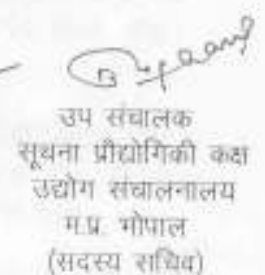 उप संचालक
सूचना प्रौद्योगिकी कक्ष
उद्योग संचालनालय
म.प्र. भोपाल
(सदस्य सचिव)